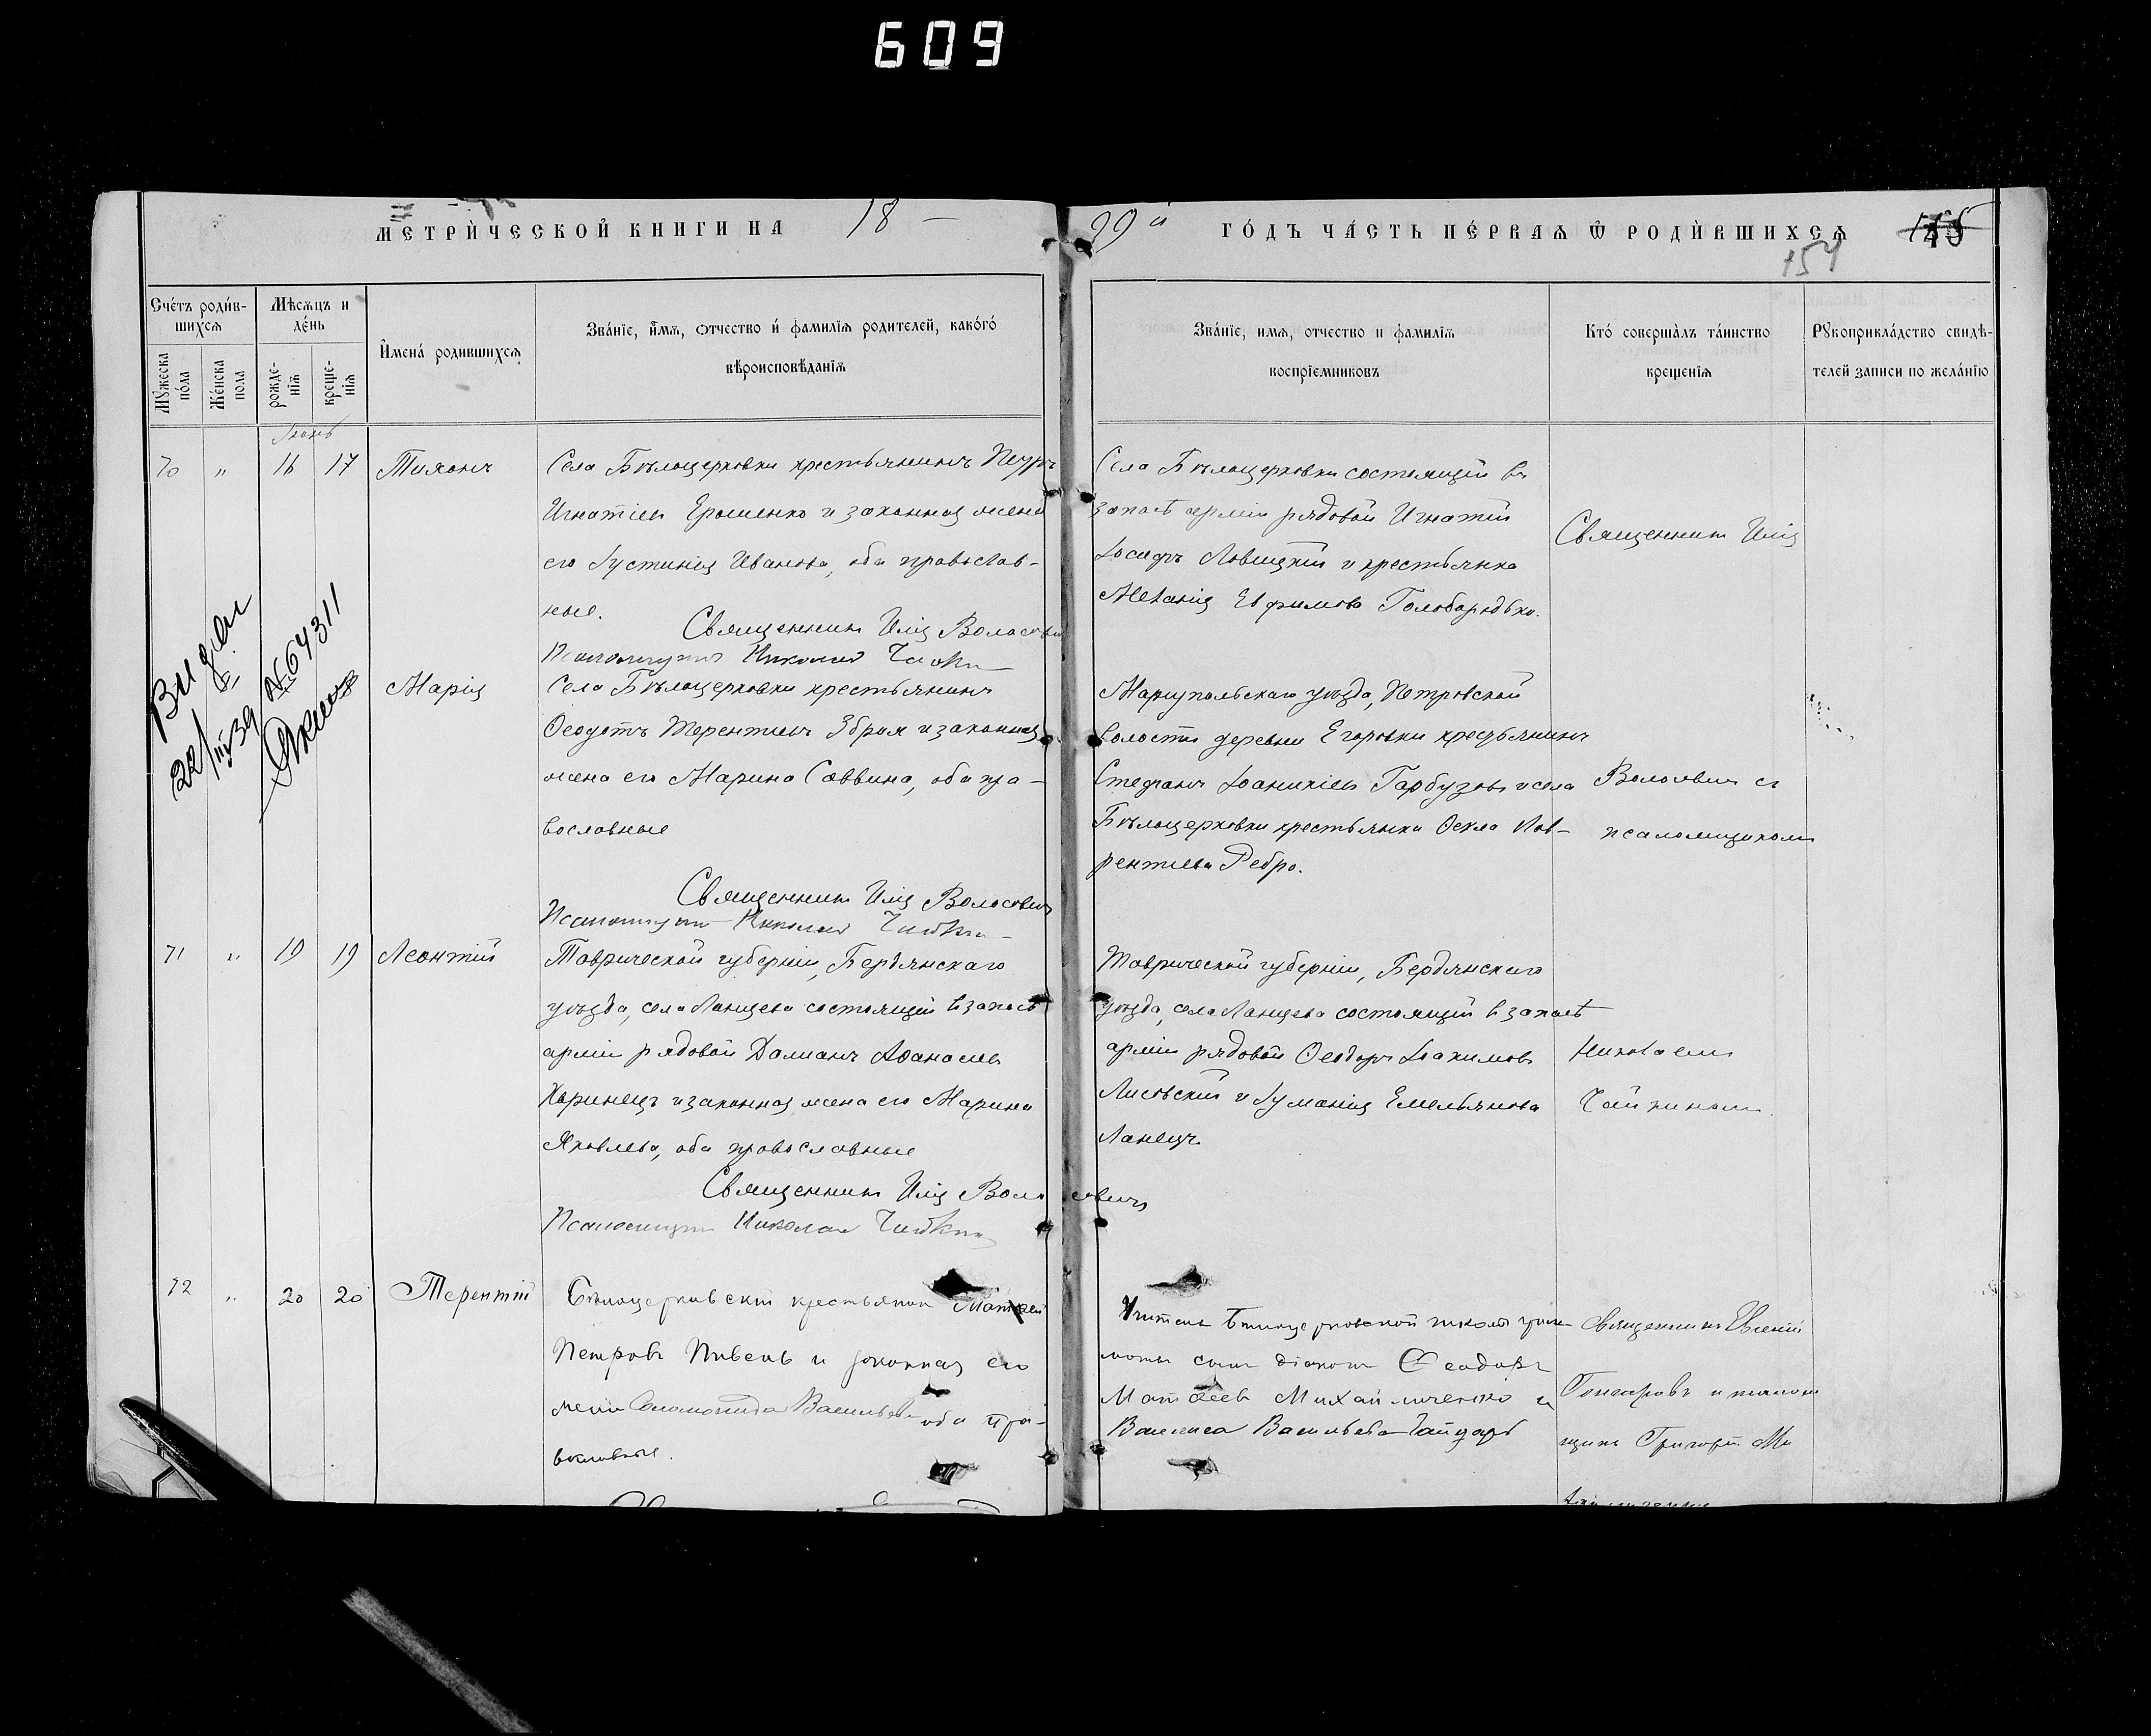 609
МЕТРИЧЕСКОЙ КНИГИ НА 18 —
99й ГОДЪ ЧАСТЬ ПЕРВАЯ Ѡ РОДИВШИХСЯ
154
Счетъ родив-
шихся
Мужеска
пола
Женска
пола
Мѣсяцъ и
день
рожде-
нія
креще-
нія
Имена родившихся
Званіе, имя, отчество и фамилія родителей, какого
вѣроисповѣданія
Званіе, имя, отчество и фамилія
воспріемниковъ
Кто совершалъ таинство
крещенія
Рукоприкладство свидѣ-
телей записи по желанію
Іюнь
70 „ 16 17 Тихонъ
Села Бѣлоцерковки крестьянинъ Петръ
Игнатіевъ Ерошенко и законная жена
его Іустинія Иванова, оба православ-
ные.
Священникъ Илія Волосовичъ
Псаломщикъ Николай
Села Бѣлоцерковки состоящій въ
запасѣ арміи рядовой Игнатій
Іосифъ Ловицкій и крестьянка
Меланія Евфимова Голобородько.
Священникъ Илія
Видан
22/III 39 № 64311
Марія
Села Бѣлоцерковки крестьянинъ
Ѳеодотъ Терентіевъ Збрая и законная
жена его Марина Саввина, оба пра-
вославные
Священникъ Илія Волосовичъ
Псаломщикъ Николай
Маріупольскаго уѣзда, Петровской
волости деревни Егоровки крестьянинъ
Стефанъ Іоанникіевъ Гарбузовъ и села
Бѣлоцерковки крестьянка Ѳекла Лав-
рентіева Ребро.
Волосовичъ съ
псаломщикомъ
71 „ 19 19 Леонтій
Таврической губерніи, Бердянскаго
уѣзда, села Ланцева состоящій въ запасѣ
арміи рядовой Даміанъ Аѳанасіевъ
Харинецъ и законная жена его Марина
Яковлева, оба православные
Священникъ Илія Волосовичъ
Псаломщикъ Николай
Таврической губерніи, Бердянскаго
уѣзда, села Ланцева состоящій въ запасѣ
арміи рядовой Ѳеодоръ Іоакимовъ
Лисовскій и Іуліанія Емельянова
Ланецъ.
Николаемъ
Чайкинымъ.
72 „ 20 20 Терентій
Бѣлоцерковскій крестьянинъ Матѳей
Петровъ Пивень и законная его
жена Соломонида Васильева оба пра-
вославные.
Учитель Бѣлоцерковской школы гра-
моты сынъ діакона Ѳеодоръ
Матѳеевъ Михайличенко и
Василиса Васильева Гайдаръ
Священникъ Евгеній
Гончаровъ и псалом
щикъ Григорій Ми
хайличенко